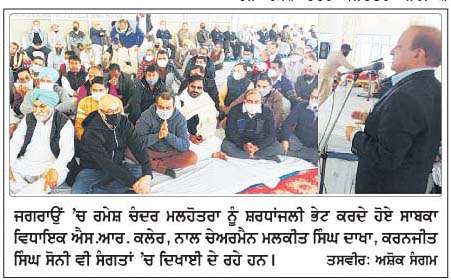 ਜਗਰਾਉਂ 'ਚ ਰਮੇਸ਼ ਚੰਦਰ ਮਲਹੋਤਰਾ ਨੂੰ ਸ਼ਰਧਾਂਜਲੀ ਭੇਟ ਕਰਦੇ ਹੋਏ ਸਾਬਕਾ
ਵਿਧਾਇਕ ਐਸ.ਆਰ. ਕਲੇਰ, ਨਾਲ ਚੇਅਰਮੈਨ ਮਲਕੀਤ ਸਿੰਘ ਦਾਖਾ, ਕਰਨਜੀਤ
ਸਿੰਘ ਸੋਨੀ ਵੀ ਸੰਗਤਾਂ 'ਚ ਦਿਖਾਈ ਦੇ ਰਹੇ ਹਨ। ਤਸਵੀਰ: ਅਸ਼ੋਕ ਸੰਗਮ